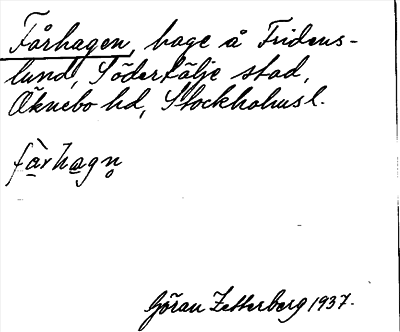 Fårhagen, hage å Fridens-
lund, Södertälje stad,
Öknebo hd, Stockholmsl.
fàrhagn̥
Göran Zetterberg 1937.